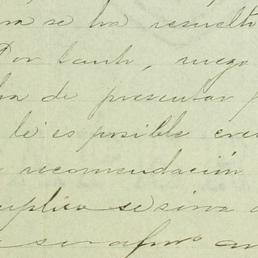 se ha resuelto
Por tanto, ruego
ha de presentar
le es posible
recomendación
suplico se sirva